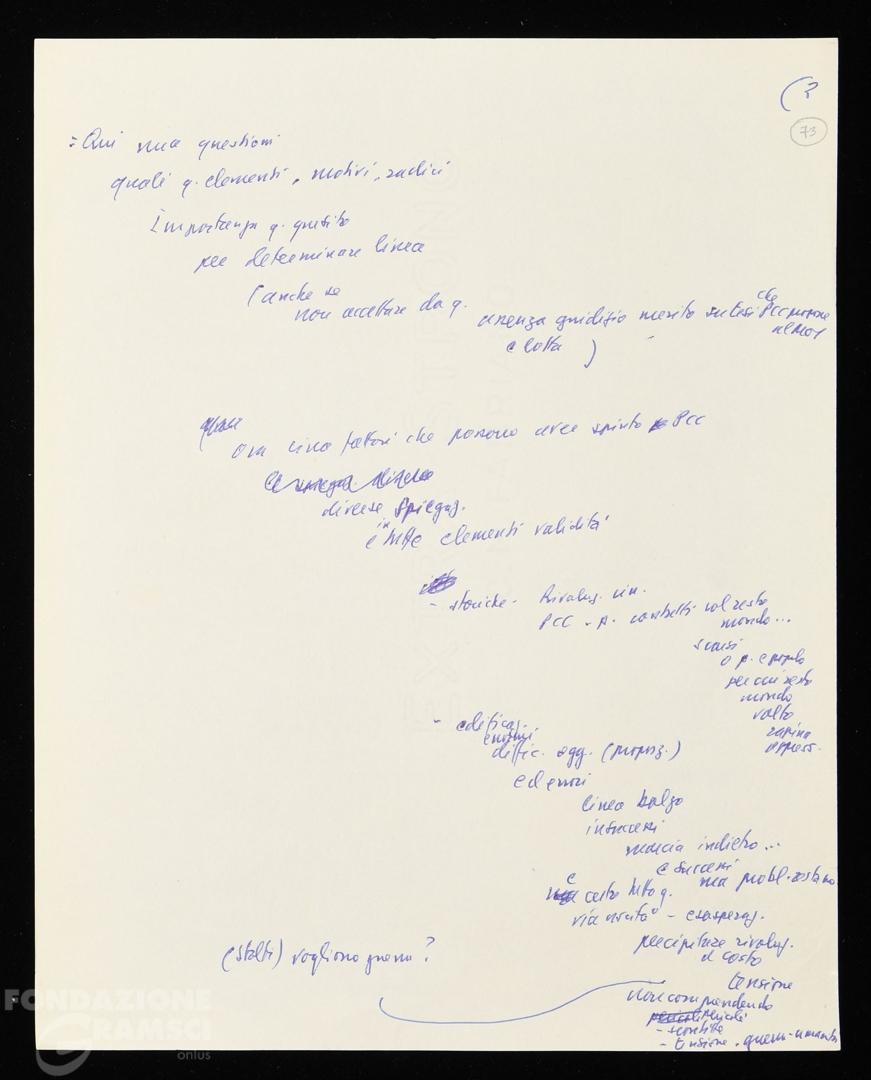 (3
73
= Qui una questioni
quali q. elementi, motivi, radici
Importanza q. quesito
per determinare linea
(anche se
non accettare da q.
giudizio merito su tesi che PCC propone
al MOI
e lotta )
Ora sono fattori che possono aver spinto PCC
diverse spiegaz.
e in tutte elementi validità
- storiche - Rivoluz. cin.
PCC - p. contatti col resto
mondo...
scarsi
o p. e popolo
per cui resto
mondo
volto
rapina
oppress.
- edificaz...
enormi
diffic. ogg. (proporz.)
ed errori
linea balzo
insuccessi
marcia indietro...
e successi
ma probl. restano
e certo tutto q.
via uscita - esasperaz.
precipitare rivoluz.
a costo
tensione
(Stolti) vogliono guerra?
non comprendendo
pericoli
- sconfitte
- tensione. guerra
FONDAZIONE
GRAMSCI
onlus